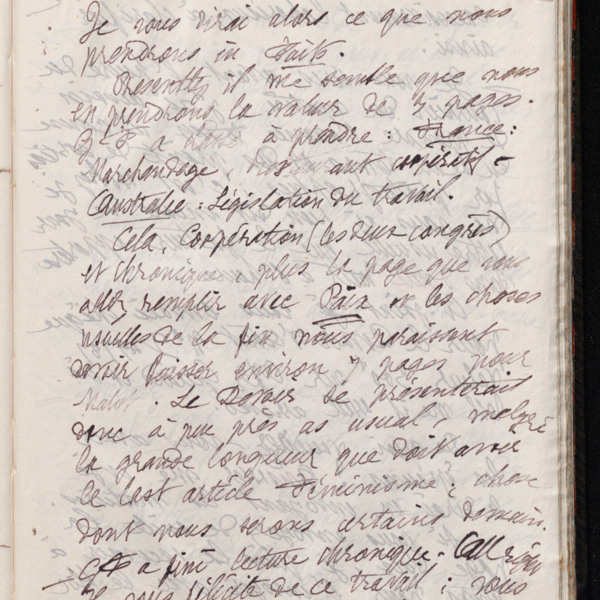 Je vous dirai alors ce que nous
prendrons in Faits.
Presently il me semble que nous
en prendrons la valeur de 3 pages.
a donc à prendre : France :
Marchandage, restaurant coopératif –
Australie : Législation du travail.
Cela, Coopération (les deux congrès)
et chronique, plus la page que vous
allez remplir avec Paix et les choses
usuelles de la fin nous paraissant
devoir laisser environ 7 pages pour
Malot. Le Devoir se présenterait
donc à peu près as usual, malgré
la grande longueur que doit avoir
le last article Féminisme ; chose
dont nous serons certains demain.
a fini lecture chronique.
Je vous félicite de ce travail ; vous